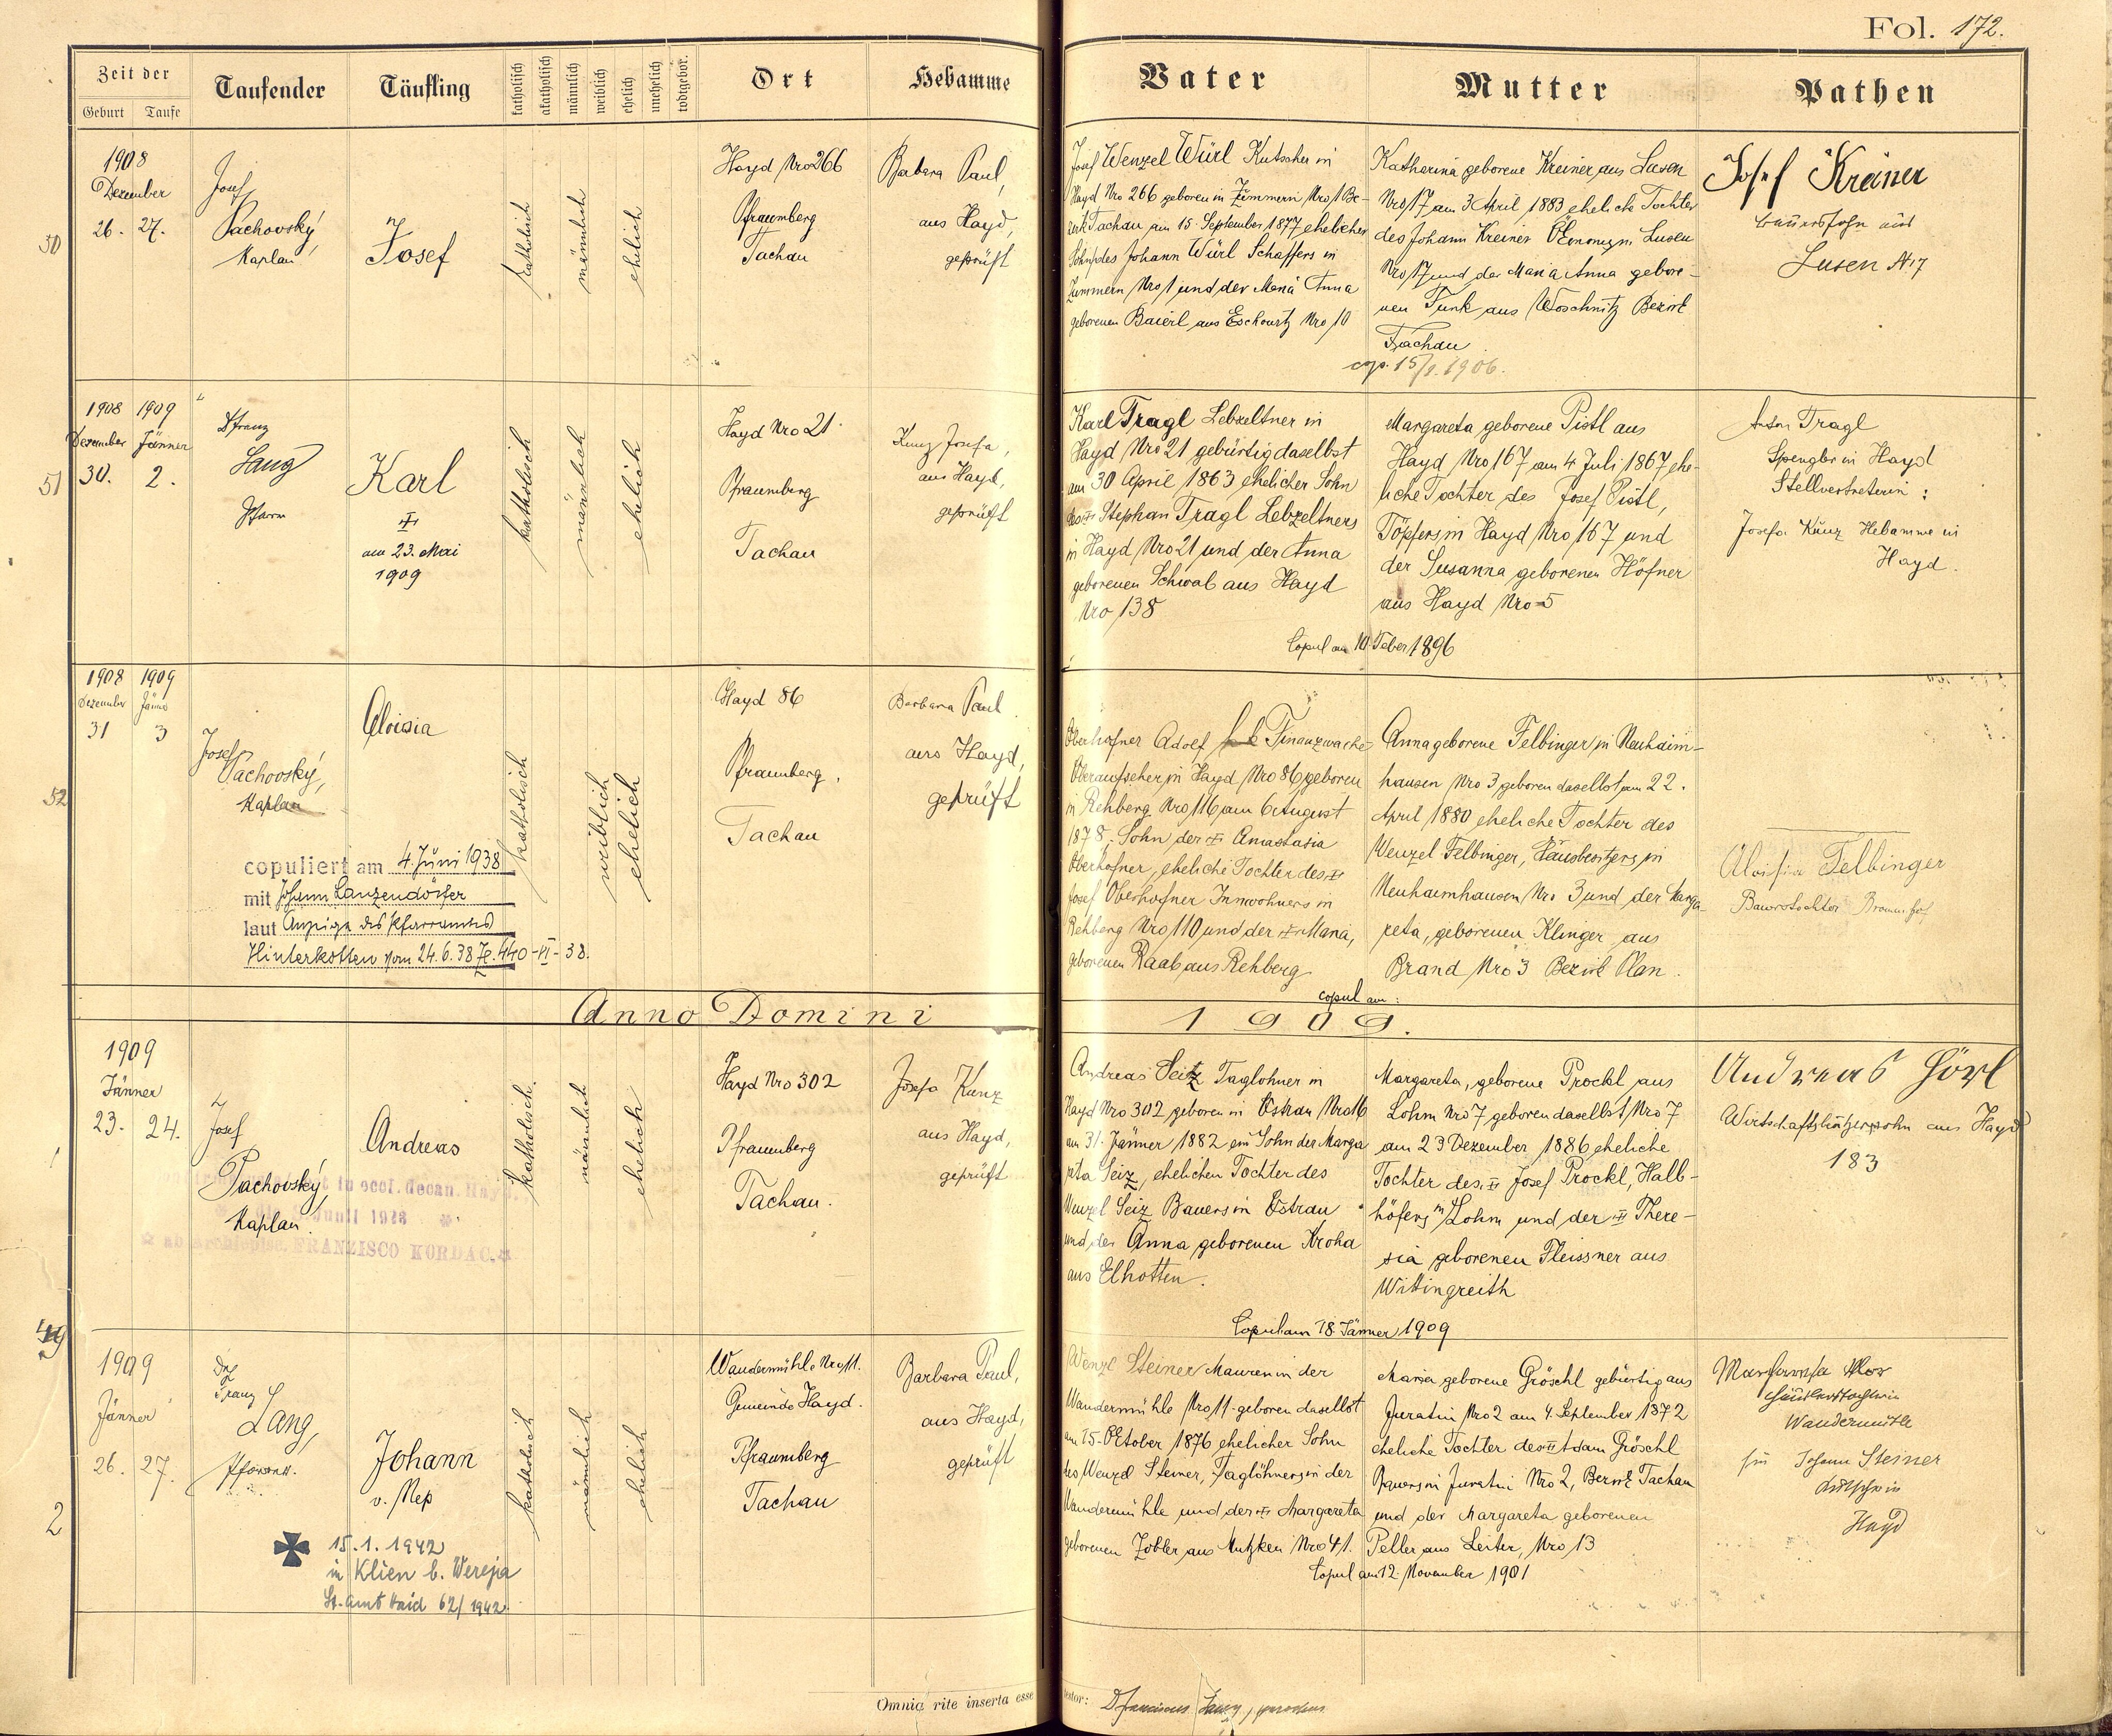 Fol. 172.
Zeit der
Geburt Taufe
Taufender
Täufling
katholisch
akatholisch
männlich
weiblich
ehelich
unehelich
todtgebor.
Ort
Hebamme
Vater
Mutter
Pathen
50
1908
Dezember
26. 27.
Josef
Pachovský,
Kaplan
Josef
katholisch
männlich
ehelich
Hayd Nro 266
Pfraumberg
Tachau
Barbara Paul,
aus Hayd,
geprüft
Josef Wenzel Würl Kutscher in
Hayd Nro 266 geboren in Zummern Nro 1 Be-
zirk Tachau am 15 September 1877 ehelicher
Sohn des Johann Würl Schaffers in
Zummern Nro 1 und der Maria Anna
geborenen Baierl aus Eschowitz Nro 10
Katharina geborene Kreiner aus Lusen
Nro 17 am 3 April 1883 eheliche Tochter
des Johann Kreiner Ökonomen Lusen
Nro 17 und der Maria Anna gebore-
nen Funk aus Woschnitz Bezirk
Tachau
cop. 15/1. 1906.
Josef Kreiner
Bauerssohn aus
Lusen N. 17
51
1908 1909
Dezember Jänner
30. 2.
Dr Franz
Lang
Pfarrer
Karl
am 23. Mai
1909
katholisch
männlich
ehelich
Hayd Nro 21.
Pfraumberg
Tachau
Kunz Josefa,
aus Hayd,
geprüft
Karl Tragl Lebzeltner in
Hayd Nro 21 gebürtig daselbst
am 30 April 1863 ehelicher Sohn
des Stephan Tragl Lebzeltners
in Hayd Nro 21 und der Anna
geborenen Schwab aus Hayd
Nro 138
Margareta geborene Pistl aus
Hayd Nro 167 am 4 Juli 1867 ehe-
liche Tochter des Josef Pistl,
Töpfers in Hayd Nro 167 und
der Susanna geborenen Höfner
aus Hayd Nro 5
Copul am 10. Feber 1896
Anton Tragl
Spengler in Hayd
Stellvertreterin:
Josefa Kunz Hebamme in
Hayd.
52
1908 1909
Dezember Jänner
31 3
Josef
Pachovský,
Kaplan
Aloisia
copuliert am 4. Juni 1938
mit Johann Lanzendörfer
laut Anzeige des Pfarramtes
Hinterkotten vom 24.6.38 Z. 440-VI-38.
katholisch
weiblich
ehelich
Hayd 86
Pfraumberg,
Tachau
Barbara Paul
aus Hayd,
geprüft
Oberhofner Adolf k k Finanzwache
Oberaufseher in Hayd Nro 86, geboren
in Rehberg Nro 116 am 6 August
1878, Sohn der Anastasia
Oberhofner, eheliche Tochter des
Josef Oberhofner Inwohners in
Rehberg Nro 110 und der Maria,
geborenen Raab aus Rehberg
Anna geborene Felbinger in Neuhaim-
hausen Nro 3, geboren daselbst am 22.
April 1880 eheliche Tochter des
Wenzel Felbinger, Hausbesitzers in
Neuhaimhausen Nro 3 und der Marga-
reta, geborenen Klinger aus
Brand Nro 3 Bezirk Plan.
copul am:
Aloisia Felbinger
Bauerstochter
Anno Domini
1909.
1
1909
Jänner
23. 24.
Josef
Pachovský,
Kaplan.
in eccl. decan. Hayd
Junii 1928
ab archiepisc. FRANZISCO KORDAC.
Andreas
katholisch.
männlich
ehelich
Hayd Nro 302
Pfraumberg
Tachau.
Josefa Kunz
aus Hayd,
geprüft
Andreas Seitz Taglöhner in
Hayd Nro 302 geboren in Ostrau Nro 16
am 31. Jänner 1882 ein Sohn der Marga
reta Seiz, ehelichen Tochter des
Wenzel Seiz Bauers in Ostrau
und der Anna geborenen Kroha
aus Elhotten.
Margareta, geborene Prockl aus
Lohm Nro 7 geboren daselbst Nro 7
am 23 Dezember 1886 eheliche
Tochter des Josef Prockl, Halb-
höfers in Lohm und der There-
sia geborenen Fleissner aus
Wittingreith
Copul am 18. Jänner 1909
Andreas Hörl
Wirtschaftsbesitzerssohn aus Hayd
183
2
1909
Jänner
26. 27.
Dr
Franz
Lang,
Pfarrer.
Johann
v. Nep
15.1.1942
in Klien b. Wereja
St. Amt Haid 62/1942.
katholisch
männlich
ehelich
Wandermühle Nro 11.
Gemeinde Hayd.
Pfraumberg
Tachau
Barbara Paul,
aus Hayd,
geprüft
Wenzl Steiner Maurer in der
Wandermühle Nro 11. geboren daselbst
am 15. Oktober 1876 ehelicher Sohn
des Wenzel Steiner, Taglöhners in der
Wandermühle und der Margareta
geborenen Zobler aus Mutzken Nro 41.
Maria geborene Gröschl gebürtig aus
Juratin Nro 2 am 4. September 1872
eheliche Tochter des Adam Gröschl
Bauers in Juratin Nro 2, Bezirk Tachau
und der Margareta geborenen
Peller aus Leiter, Nro 13
Copul am 12. November 1901
Wandermühle
für Johann Steiner
Kutscher in
Hayd
Omnia rite inserta esse
testor: Dr Franciscus Lang, parochus